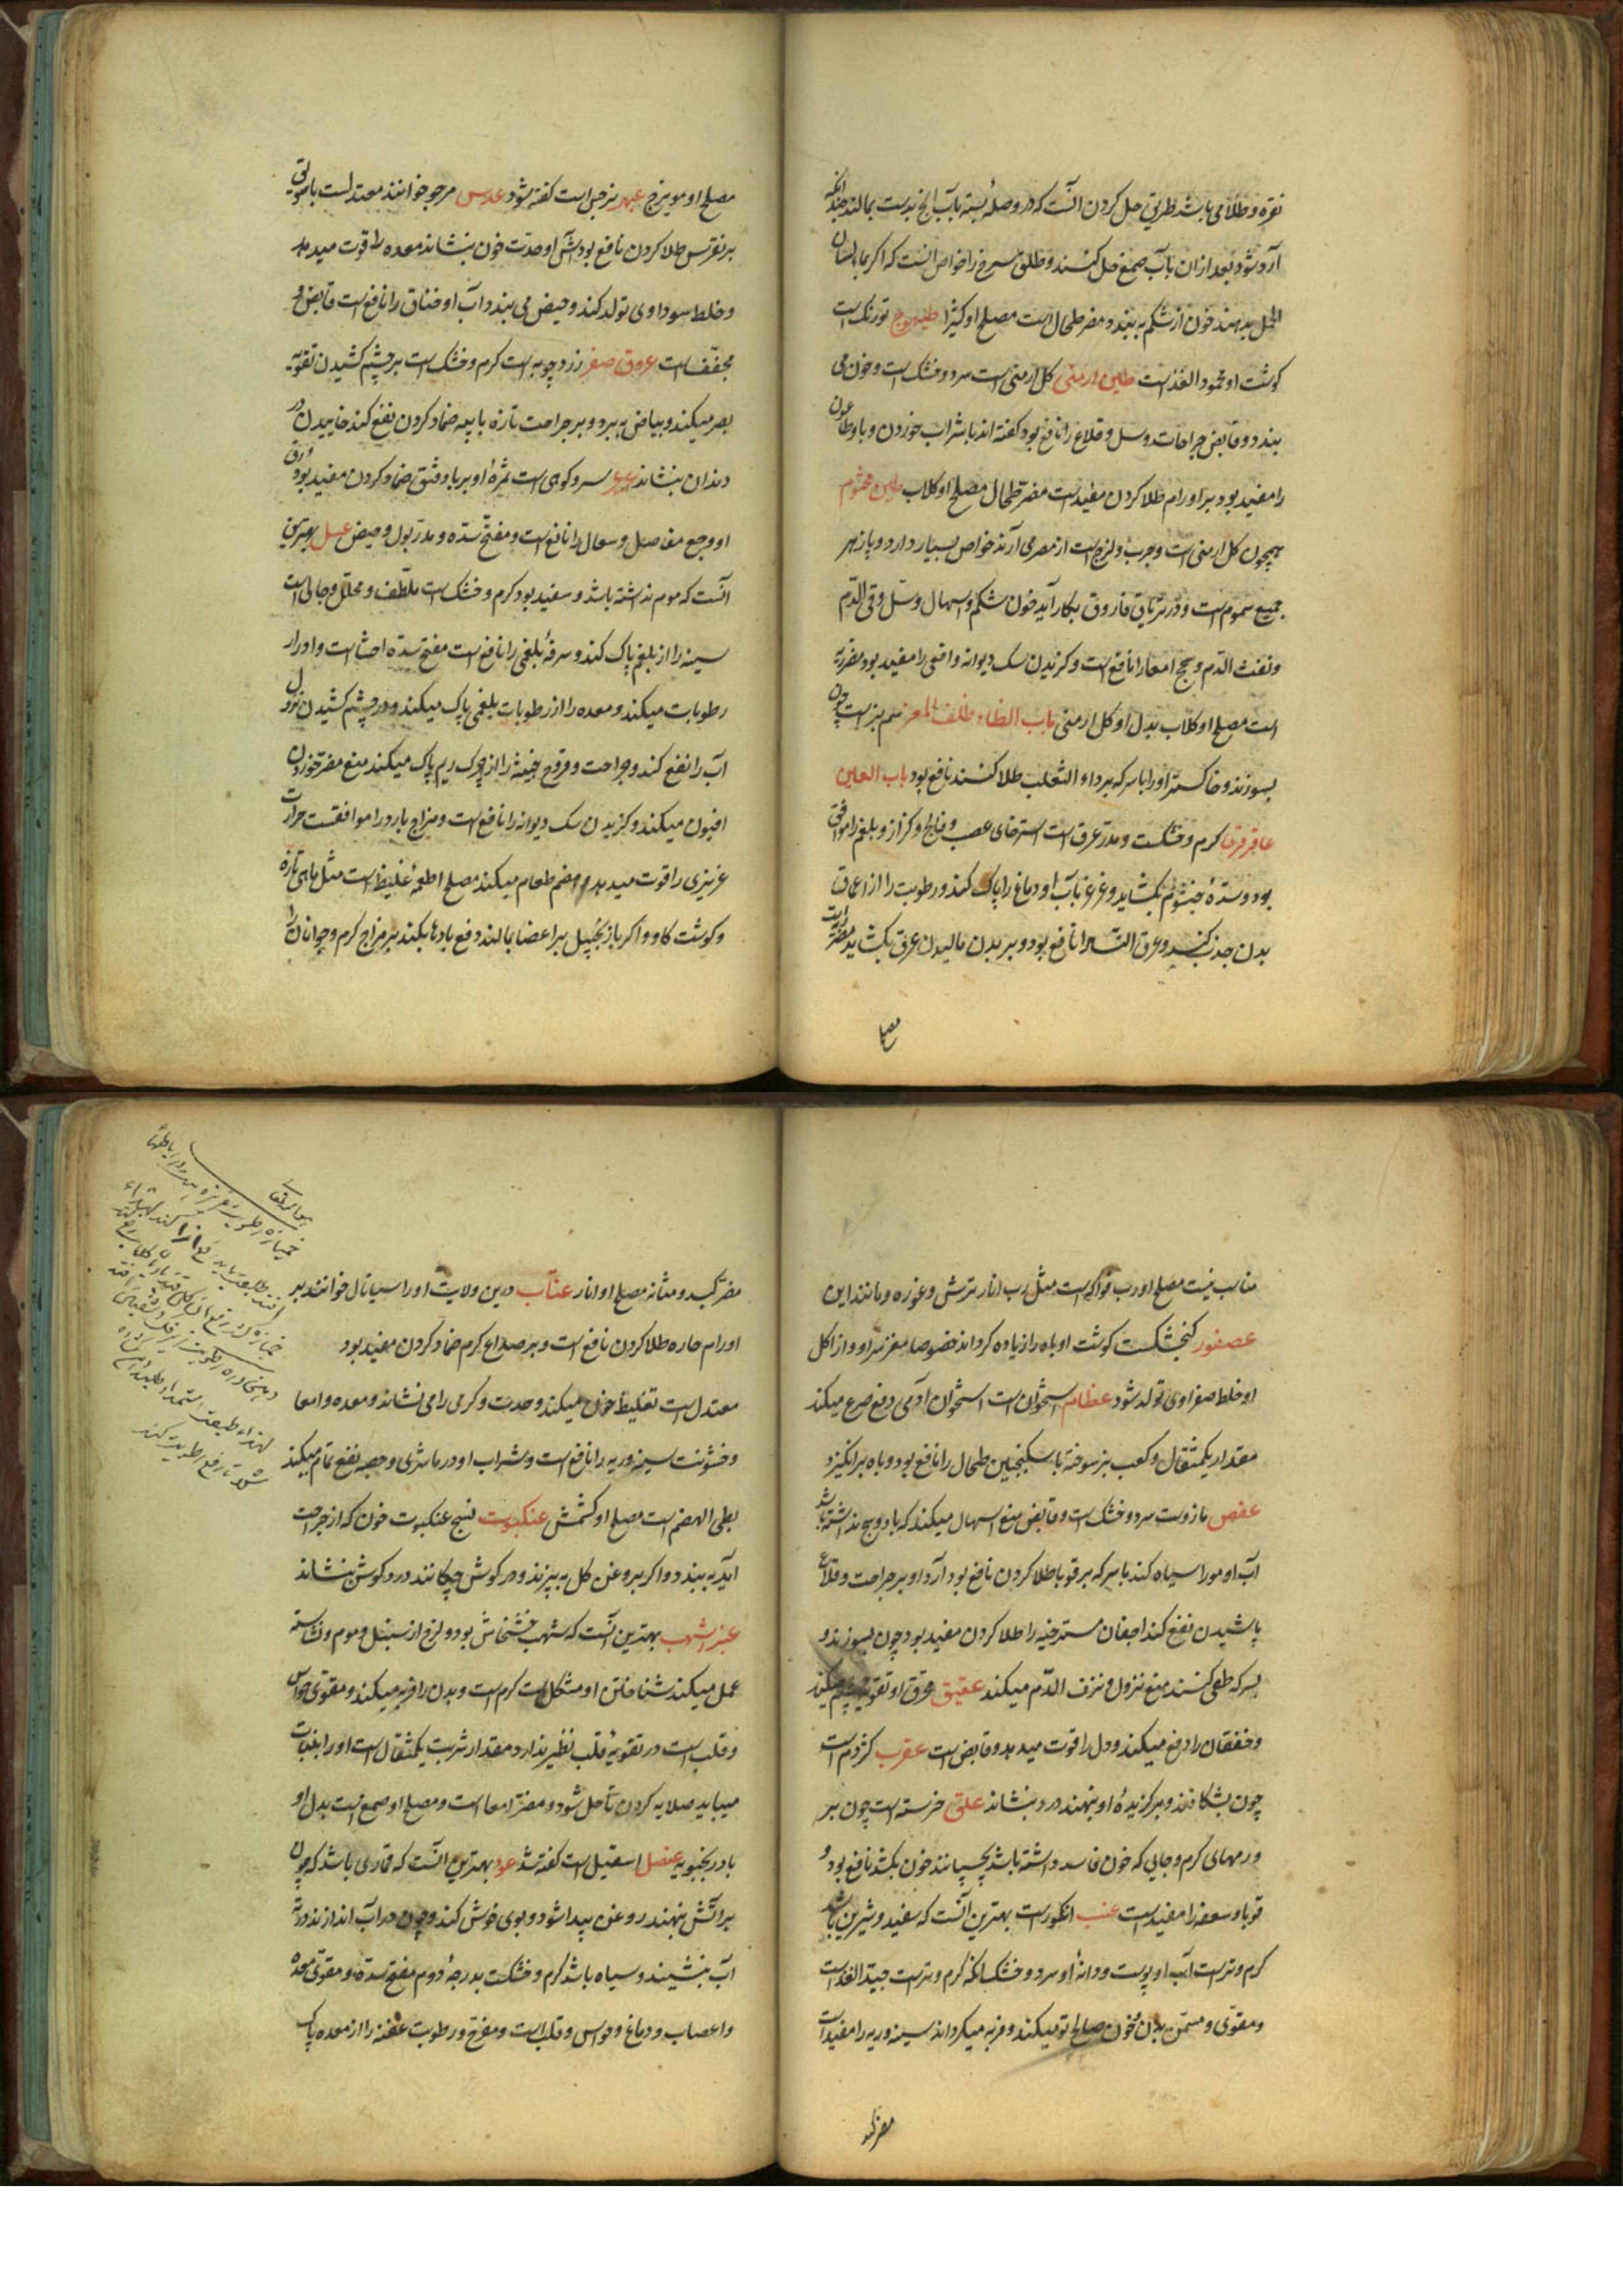 نقره و طلا می باشد طریق حل کردن آنست که در وصلهٔ بسته بآب یخ بدست بمالند چندانکه
آرد شود بعد ازان بآب صمغ حل کنند و طلق سرخ را خواص آنست که اکر بماء لسان
الحمل بدهند خون از شکم به بندد مضر طحال است مصلح او کتیرا طیهوج تورنک است
کوشت او محمود الغذاست طین ارمنی کل ارمنی است سرد و خشک است و خون می
بندد و قابض جراحات و سل و قلاع را نافع بود کفته اند با شراب خوردن وبا و طاعون
را مفید بود بر اورام طلا کردن مفیدست مضر طحال مصلح او کلاب طین مختوم
همچون کل ارمنی است و چرب و لزج است از مصر می آرند خواص بسیار دارد و پازهر
جمیع سموم است و در تریاق فاروق بکار آید خون شکم و اسهال و سل و قی الدم
و نفث الدم و سحج امعا را نافع است و کزیدن سک دیوانه و افعی را مفید بود مضر ریه
است مصلح او کلاب بدل او کل ارمنی باب الظاء ظلف المعز سم بز است چون
بسوزند و خاکستر او را با سرکه بر داء الثعلب طلا کنند نافع بود باب العین
عاقرقرحا کرم و خشکست و مدر عرق است استرخای عصب و فالج و کزاز و بلغم را موافق
بود و سدهٔ خیشوم بکشاید و غرغره بآب او دماغ را پاک کند و رطوبت را از اعماق
بدن جذب کند و عرق النسا را نافع بود و بر بدن مالیدن عرق بکشاید مضر ریه است
مصلح
مصلح او مویزج عبهر نرجس است کفته شود عدس مرجو خوانند معتدلست با موق
بر نقرس طلا کردن نافع بود آش او حدت خون بنشاند معده را قوت میدهد
و خلط سوداوی تولد کند و حیض می بندد آب او خناق را نافع است قابض و
مجفف است عروق صفر زرد چوبه است کرم و خشک است بر چشم کشیدن تقویه
بصر میکند و بیاض به برد و بر جراحت تازه با پیه ضماد کردن نفع کند خاییدن درد
دندان بنشاند عرعر سرو کوهی است ثمرهٔ او بر باد فتق ضماد کردن مفید بود ورق
او وجع مفاصل و سعال را نافع است و مفتح سده و مدر بول و حیض عسل بهترین
آنست که موم نداشته باشد و سفید بود کرم و خشک است ملطف و محلل و جالی است
سینه را از بلغم پاک کند و سرفهٔ بلغمی را نافع است مفتح سده احشا است و ادرار
رطوبات میکند و معده را از رطوبات بلغمی پاک میکند و در چشم کشیدن نزول
آب را نفع کند و جراحت و قروح خبیثه را از چرک ریم پاک میکند منع مضرت خوردن
افیون میکند و کزیدن سک دیوانه را نافع است و مزاج بارد را موافقست حرارت
غریزی را قوت میدهد و هضم طعام میکند مصلح اطعمهٔ غلیظ است مثل ماهی تازه
و کوشت کاو و اکر با زنجبیل بر اعضا بمالند دفع بادها بکند بر مزاج کرم و جوانان را
مناسب نیست مصلح او رب فواکه است مثل رب انار ترش و غوزه و مانند این
عصفور کنجشکست کوشت او باه را زیاده کرداند خصوصا مغز سر او و از اکل
او خلط صفراوی تولد شود عظام استخوان است استخوان آدمی دفع صرع میکند
مقدار یکمثقال و کعب بز سوخته با سکنجبین طحال را نافع بود و باه بر انکیزد
عفص مازوست سرد و خشک است و قابض منع اسهال میکند که با درد سحج نداشته باشد
آب او مو را سیاه کند با سرکه بر قوبا طلا کردن نافع بود آرد او بر جراحت و قلاع
پاشیدن نفع کند اجفان مسترخیه را طلا کردن مفید بود چون بسوزند و
بسرکه طفی کنند منع نزول و نزف الدم میکند عقیق محرق او تقویه چشم میکند
و خفقان را دفع میکند و دل را قوت میدهد و قابض است عقرب کژدم است
چون بشکافند و بر کزیدهٔ او بنهند درد بنشاند علق خرسته است چون بر
ورمهای کرم و جایی که خون فاسد داشته باشد بچسپانند خون بکشد نافع بود و
قوبا و سعفه را مفید است عنب انکور است بهترین آنست که سفید و شیرین باشد
کرم و تر است آب او پوست و دانهٔ او سرد و خشک آنکه کرم و تر است جید الغذاست
و مقوی و مسمن بدن و خون صالح تو میکند و فربه میکرداند سینه و ریه را مفید است
مضر کبد
مضر کبد و مثانه مصلح او انار عناب درین ولایت او را سیلانال خوانند بر
اورام حاره طلا کردن نافع است و بر صداع کرم ضماد کردن مفید بود
معتدل است تغلیظ خون میکند و حدت و کرمی را می نشاند و معده و امعا
و خشونت سینه و ریه را نافع است و شراب او در ماشری و حصبه نفع تمام میکند
بطی الهضم است مصلح او کشمش عنکبوت نسج عنکبوت خون که از جراحت
آید به بندد و اکر بروغن کل به پزند و در کوش چکانند درد کوش بنشاند
عنبر اشهب بهترین آنست که شهب خشخاش بود و لزج از سنبل و موم و نشاسته
عمل میکند شناختن او مشکل است کرم است و بدن را فربه میکند و مقوی حواس
و قلب است در تقویهٔ قلب نظیر ندارد مقدار شربت یکمثقال است او را بغایت
میباید صلایه کردن تا حل شود و مضر امعا است و مصلح او صمغ است بدل او
بادرنجبویه عنصل اسقیل است کفته شد عود بهترین آنست که قماری باشد که چون
بر آتش بنهند روغن پیدا شود و بوی خوش کند و چون در آب اندازند در ته
آب بنشیند و سیاه باشد کرم و خشکست بدرجهٔ دوم مفتح سده و مقوی معده
و اعصاب و دماغ و حواس و قلب است و مفرح و رطوبت عفنه را از معده پاک